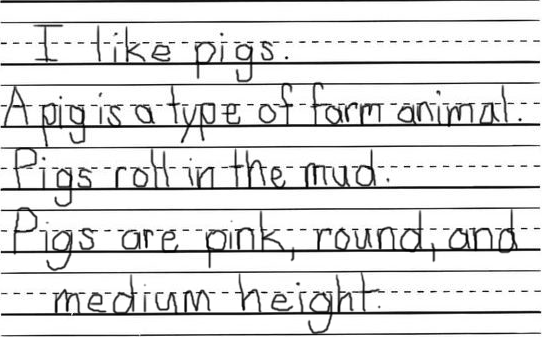 I like pigs.
A pig is a type of farm animal.
Pigs roll in the mud.
Pigs are pink, round, and
medium height.